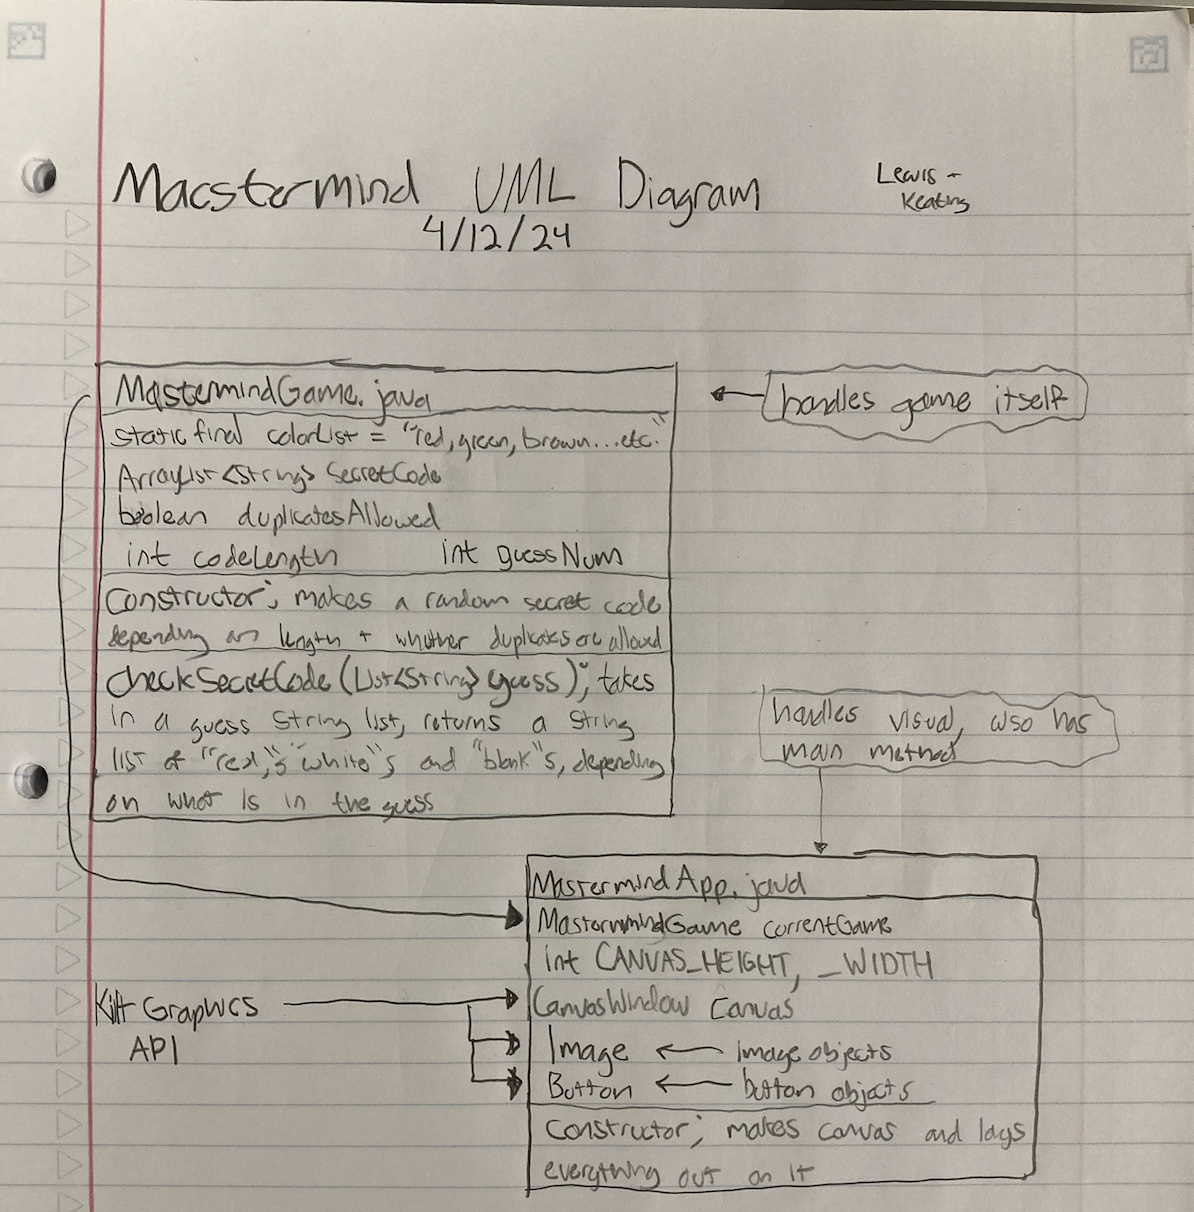 Macstermind UML Diagram
4/12/24
Lewis -
Keating
MastermindGame.java
static final colorList = "red, green, brown...etc."
ArrayList<String> SecretCode
boolean duplicatesAllowed
int codeLength int guessNum
Constructor; makes a random secret code
depending on length + whether duplicates are allowed
checkSecretCode (List<String> guess); takes
in a guess String list, returns a String
list of "red,"s "white"s and "blank"s, depending
on what is in the guess
handles game itself
handles visual, also has
main method
MastermindApp.java
MastermindGame currentGame
int CANVAS_HEIGHT, _WIDTH
CanvasWindow Canvas
Image ← Image objects
Button ← button objects
Constructor; makes canvas and lays
everything out on it
Kilt Graphics
API